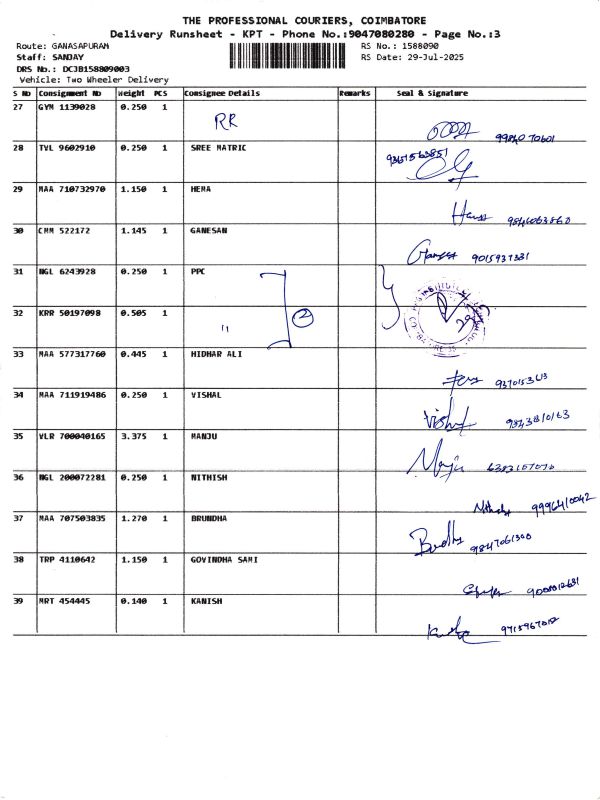 THE PROFESSIONAL COURIERS, COIMBATORE
Delivery Runsheet - KPT - Phone No.:9047080280 - Page No.:3
Route: GANASAPURAM
RS No.: 1588090
Staff: SANJAY
RS Date: 29-Jul-2025
DRS No.: DCJB158809003
Vehicle: Two Wheeler Delivery
S No Consignment No Weight PCS Consignee Details Remarks Seal & Signature
27 GYM 1139028 0.250 1 RR
28 TVL 9602910 0.250 1 SREE MATRIC
29 MAA 710732970 1.150 1 HEMA
30 CMM 522172 1.145 1 GANESAN 9015937331
31 NGL 6243928 0.250 1 PPC
2
32 KRR 50197098 0.505 1 "
33 MAA 577317760 0.445 1 HIDHAR ALI
34 MAA 711919486 0.250 1 VISHAL
35 VLR 700040165 3.375 1 MANJU
36 NGL 200072281 0.250 1 NITHISH
37 MAA 707503835 1.270 1 BRUNDHA
38 TRP 4110642 1.150 1 GOVINDHA SAMI
39 MRT 454445 0.140 1 KANISH